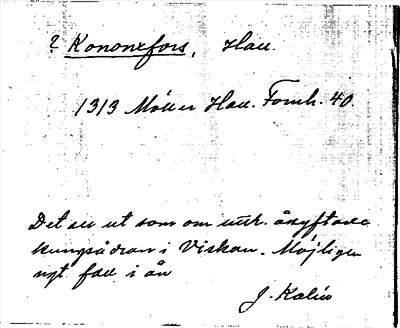 ? Kononxfors, Hall.
1313 Möller Hall. Fornh. 40.
Det ser ut som om utr. åsyftade
kungsådran i Viskan. Möjligen
ngt fall i ån
J. Kalén